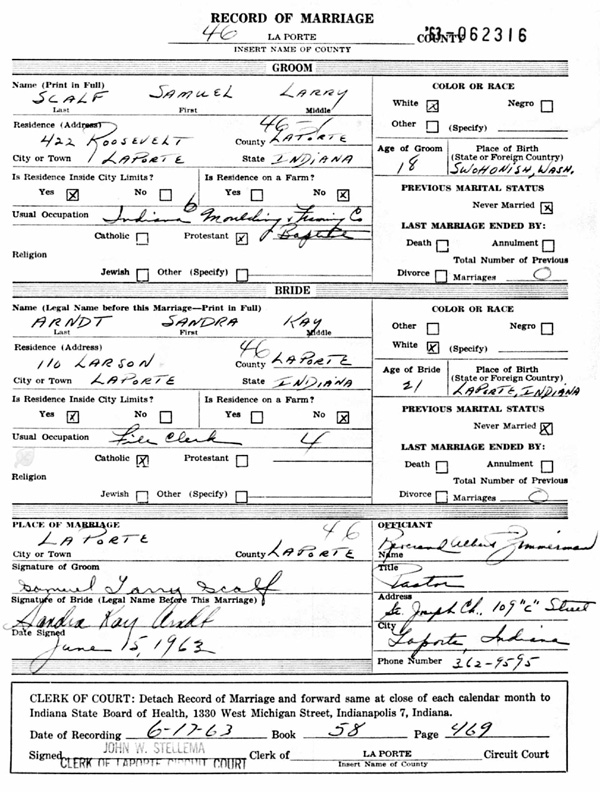 RECORD OF MARRIAGE
46 LA PORTE COUNTY '63-062316
INSERT NAME OF COUNTY
GROOM
Name (Print in Full)
SCALF SAMUEL LARRY
Last First Middle
Residence (Address) 46-1
422 ROOSEVELT County LAPORTE
City or Town LAPORTE State INDIANA
Is Residence Inside City Limits? Is Residence on a Farm?
Yes X No Yes No X
Usual Occupation Indiana Moulding & Framing Co
6
Catholic Protestant X Baptist
Religion
Jewish Other (Specify)
COLOR OR RACE
White X Negro
Other (Specify)
Age of Groom Place of Birth
(State or Foreign Country)
18 SWOHONISH, WASN.
PREVIOUS MARITAL STATUS
Never Married X
LAST MARRIAGE ENDED BY:
Death Annulment
Total Number of Previous
Divorce Marriages 0
BRIDE
Name (Legal Name before this Marriage—Print in Full)
ARNDT SANDRA KAY
Last First Middle
Residence (Address) 46
110 LARSON County LAPORTE
City or Town LAPORTE State INDIANA
Is Residence Inside City Limits? Is Residence on a Farm?
Yes X No Yes No X
Usual Occupation File Clerk 4
Catholic X Protestant
Religion
Jewish Other (Specify)
COLOR OR RACE
Other Negro
White X (Specify)
Age of Bride Place of Birth
(State or Foreign Country)
21 LAPORTE, INDIANA
PREVIOUS MARITAL STATUS
Never Married X
LAST MARRIAGE ENDED BY:
Death Annulment
Total Number of Previous
Divorce Marriages 0
PLACE OF MARRIAGE
LAPORTE 46
City or Town County LAPORTE
Signature of Groom
Samuel Larry Scalf
Signature of Bride (Legal Name Before This Marriage)
Sandra Kay Arndt
Date Signed
June 15, 1963
OFFICIANT
Reverend Albert Zimmerman
Name
Title
Pastor
Address
St. Joseph Ch., 109 "C" Street
City
Laporte, Indiana
Phone Number 362-9595
CLERK OF COURT: Detach Record of Marriage and forward same at close of each calendar month to
Indiana State Board of Health, 1330 West Michigan Street, Indianapolis 7, Indiana.
Date of Recording 6-17-63 Book 58 Page 469
JOHN W. STELLEMA
Signed CLERK OF LAPORTE CIRCUIT COURT Clerk of LA PORTE Circuit Court
Insert Name of County